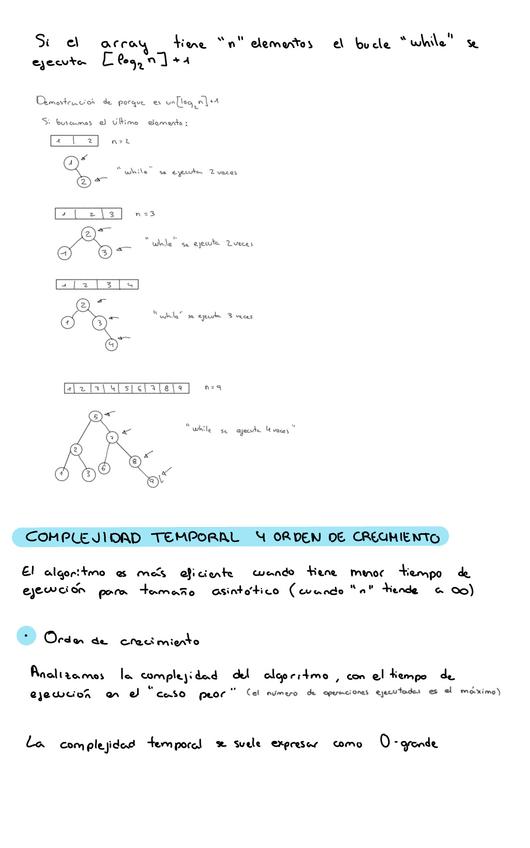 Si el array tiene "n" elementos el bucle "while" se
ejecuta [log₂n]+1
Demostración de porque es un [log₂n]+1
Si buscamos el último elemento:
1 2 n=2
1
2
"while" se ejecuta 2 veces
1 2 3 n=3
2
1 3
"while" se ejecuta 2 veces
1 2 3 4
2
1 3
4
"while" se ejecuta 3 veces
1 2 3 4 5 6 7 8 9 n=9
5
7
2
8
1 3 6
9
"while se ejecuta 4 veces"
COMPLEJIDAD TEMPORAL Y ORDEN DE CRECIMIENTO
El algoritmo es más eficiente cuando tiene menor tiempo de
ejecución para tamaño asintótico (cuando "n" tiende a ∞)
· Orden de crecimiento
Analizamos la complejidad del algoritmo, con el tiempo de
ejecución en el "caso peor" (el número de operaciones ejecutadas es el máximo)
La complejidad temporal se suele expresar como O-grande